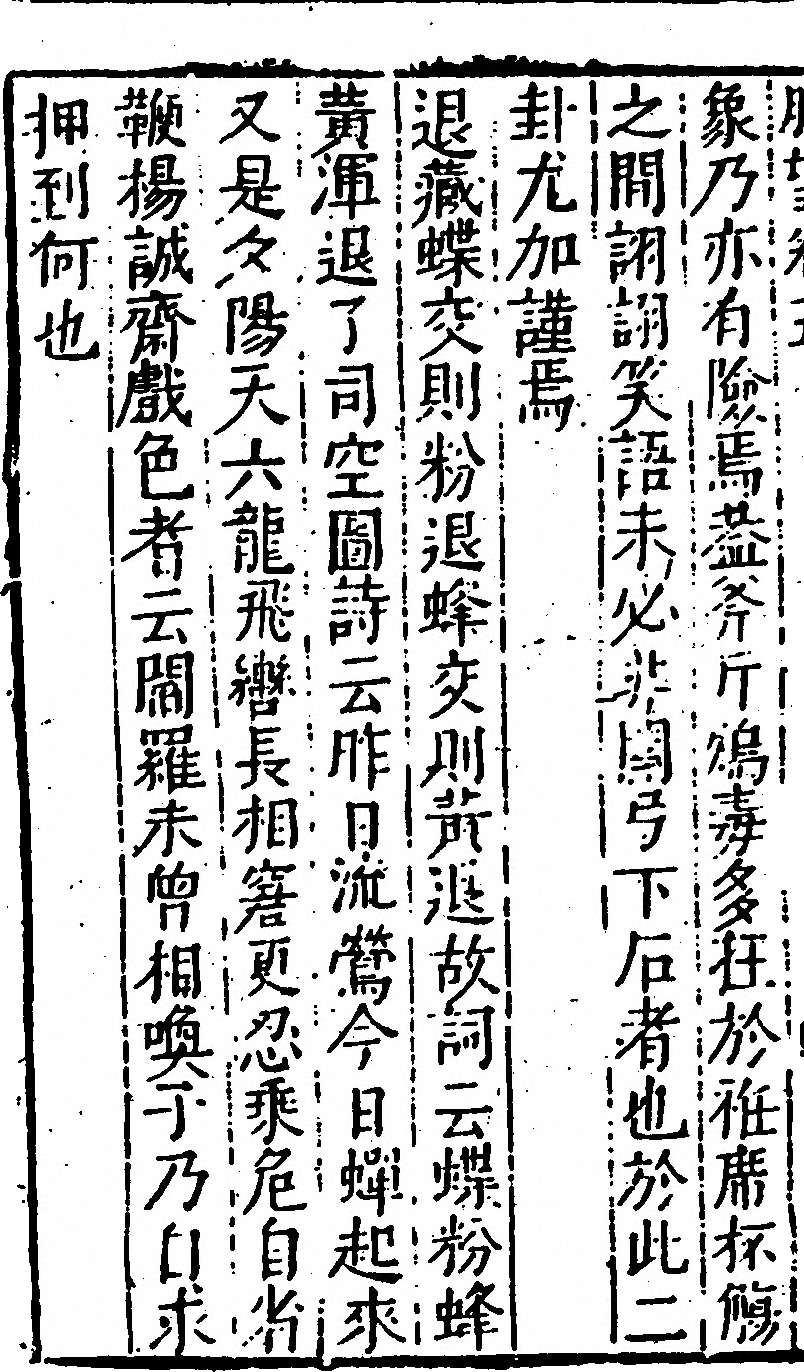 象乃亦有險焉葢斧斤鴆毒多在於袵席杯觴
之間詡詡笑語未必非關弓下石者也於此二
卦尤加謹焉
退藏蝶交則粉退蜂交則黄退故詞云蝶粉蜂
黃渾退了司空圖詩云昨日流鶯今日蟬起來
又是夕陽天六龍飛轡長相窘更忍乘危自著
鞭楊誠齋戲色者云閻羅未曾相喚子乃自求
押到何也